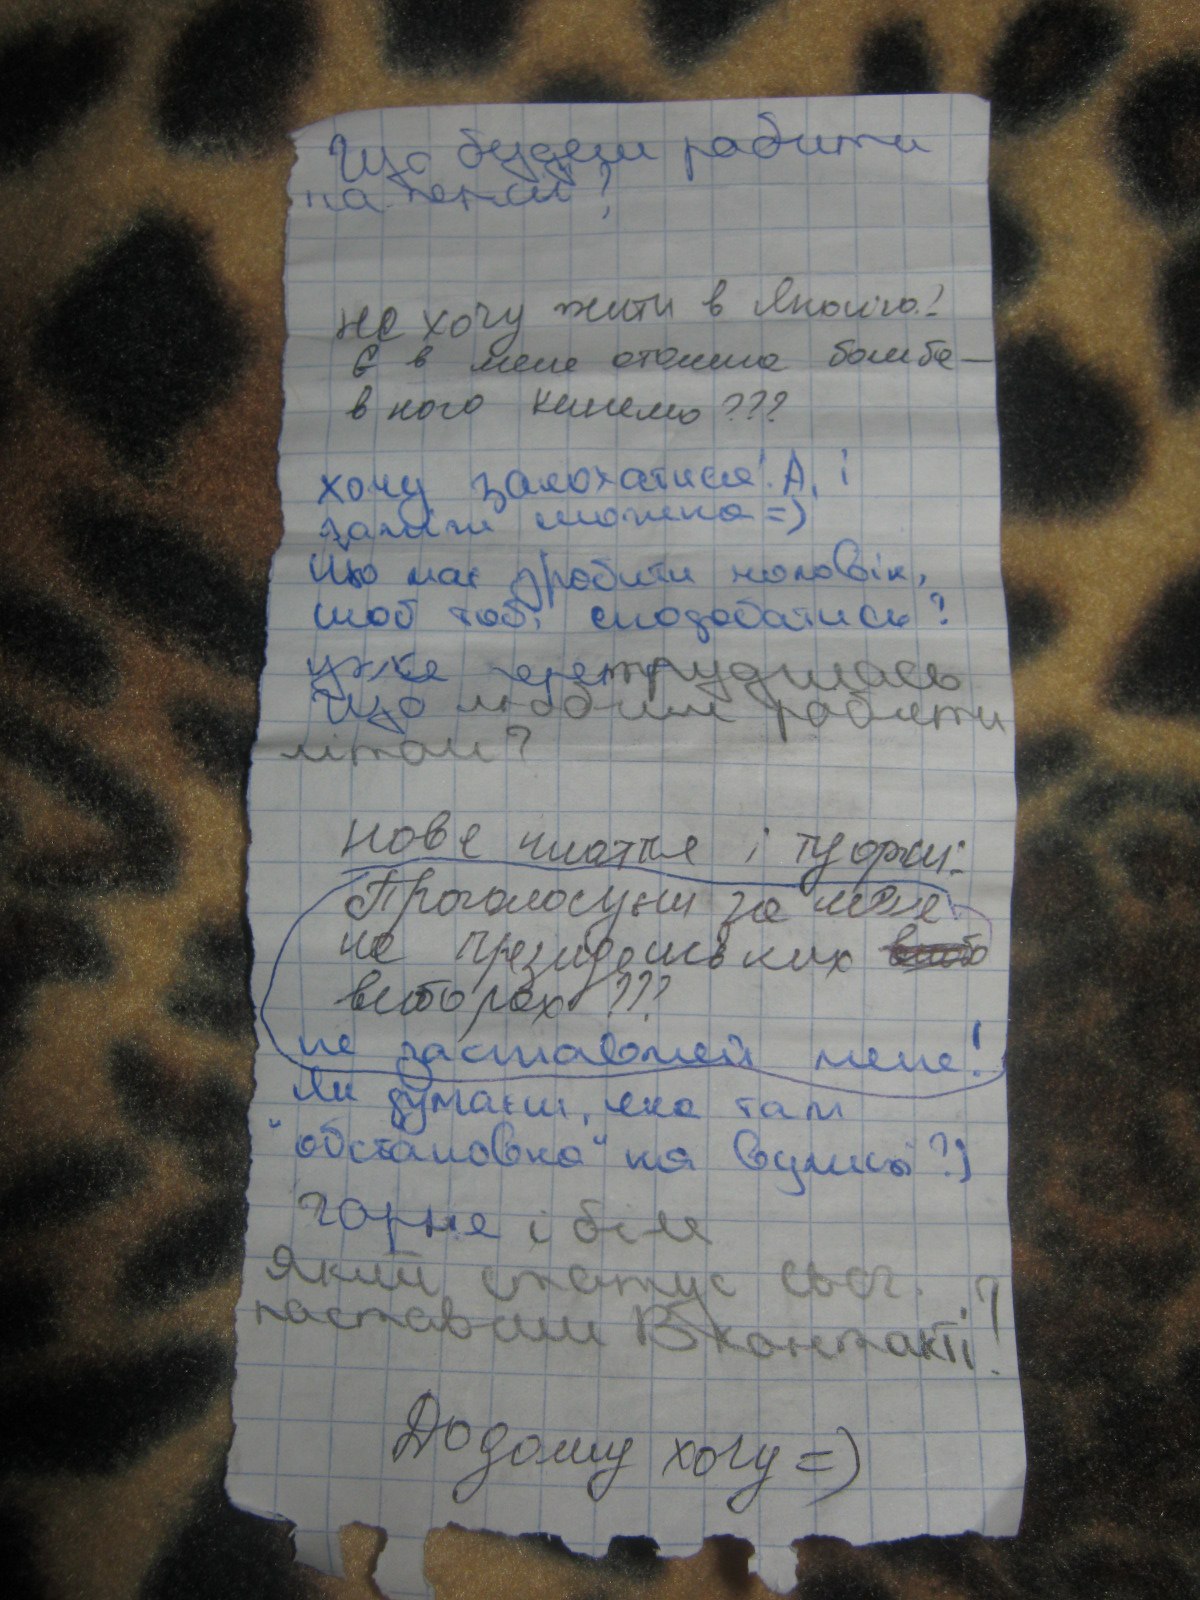 Що будеш рабити
на пенсії?
не хочу жити в Японією!
Є в мене атомна бомба —
в кого кинемо???
хочу закохатися! А, і
заміж можна =)
Що має зробити чоловік,
щоб тобі сподобатись?
уже перетрудилась
Що любиш рабити
літом?
нове плаття і туфлі!
Проголосуєш за мене
на президентських
виборах???
не заставляй мене!
Як думаєш, яка там
"обстановка" на вулиці?)
Чорне і біле
Який статус сьог.
поставиш Вконтакті?
Додому хочу =)